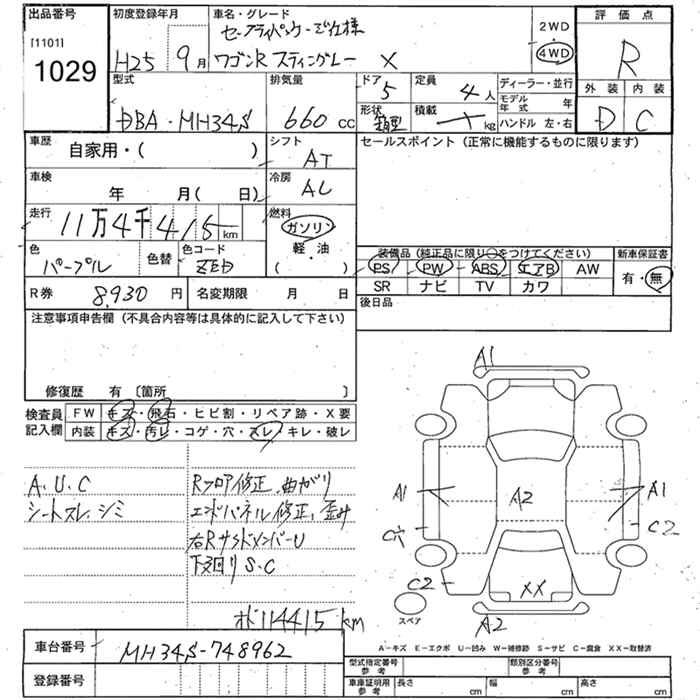 出品番号
[1101]
1029
初度登録年月
H25 9月
車名・グレード
セーフティパッケージ仕様
ワゴンR スティングレー X
2WD
4WD
評価点
R
外装 内装
D C
型式
DBA・MH34S
排気量
660 cc
ドア
5
定員
4人
形状
箱型
積載
kg
ディーラー・並行
モデル年式 年
ハンドル 左・右
車歴
自家用・( )
シフト
AT
車検
年 月( 日)
冷房
AC
走行
11万4千415km
燃料
ガソリン
軽・油
( )
色
パープル
色替
色コード
ZED
セールスポイント(正常に機能するものに限ります)
装備品(純正品に限り○をつけてください)
新車保証書
PS PW ABS エアB AW
SR ナビ TV カワ
有・無
後日品
R券
8,930円
名変期限 月 日
注意事項申告欄(不具合内容等は具体的に記入して下さい)
修復歴 有〔箇所 〕
検査員記入欄
FW キズ・飛石・ヒビ割・リペア跡・X要
内装 キズ・汚レ・コゲ・穴・スレ・キレ・破レ
A.U.C
シートスレ.シミ
Rフロア修正.曲がり
エンドパネル修正、歪み
右RサイドメンバーU
下廻りS.C
メーター114415km
A1
A1
A2
A1
C穴
C2
C2
XX
A2
スペア
A-キズ E-エクボ U-凹み W-補修跡 S-サビ C-腐食 XX-取替済
車台番号
MH34S-748962
登録番号
型式指定番号
参考
類別区分番号
参考
車庫証明用
参考
長さ cm
幅 cm
高さ cm